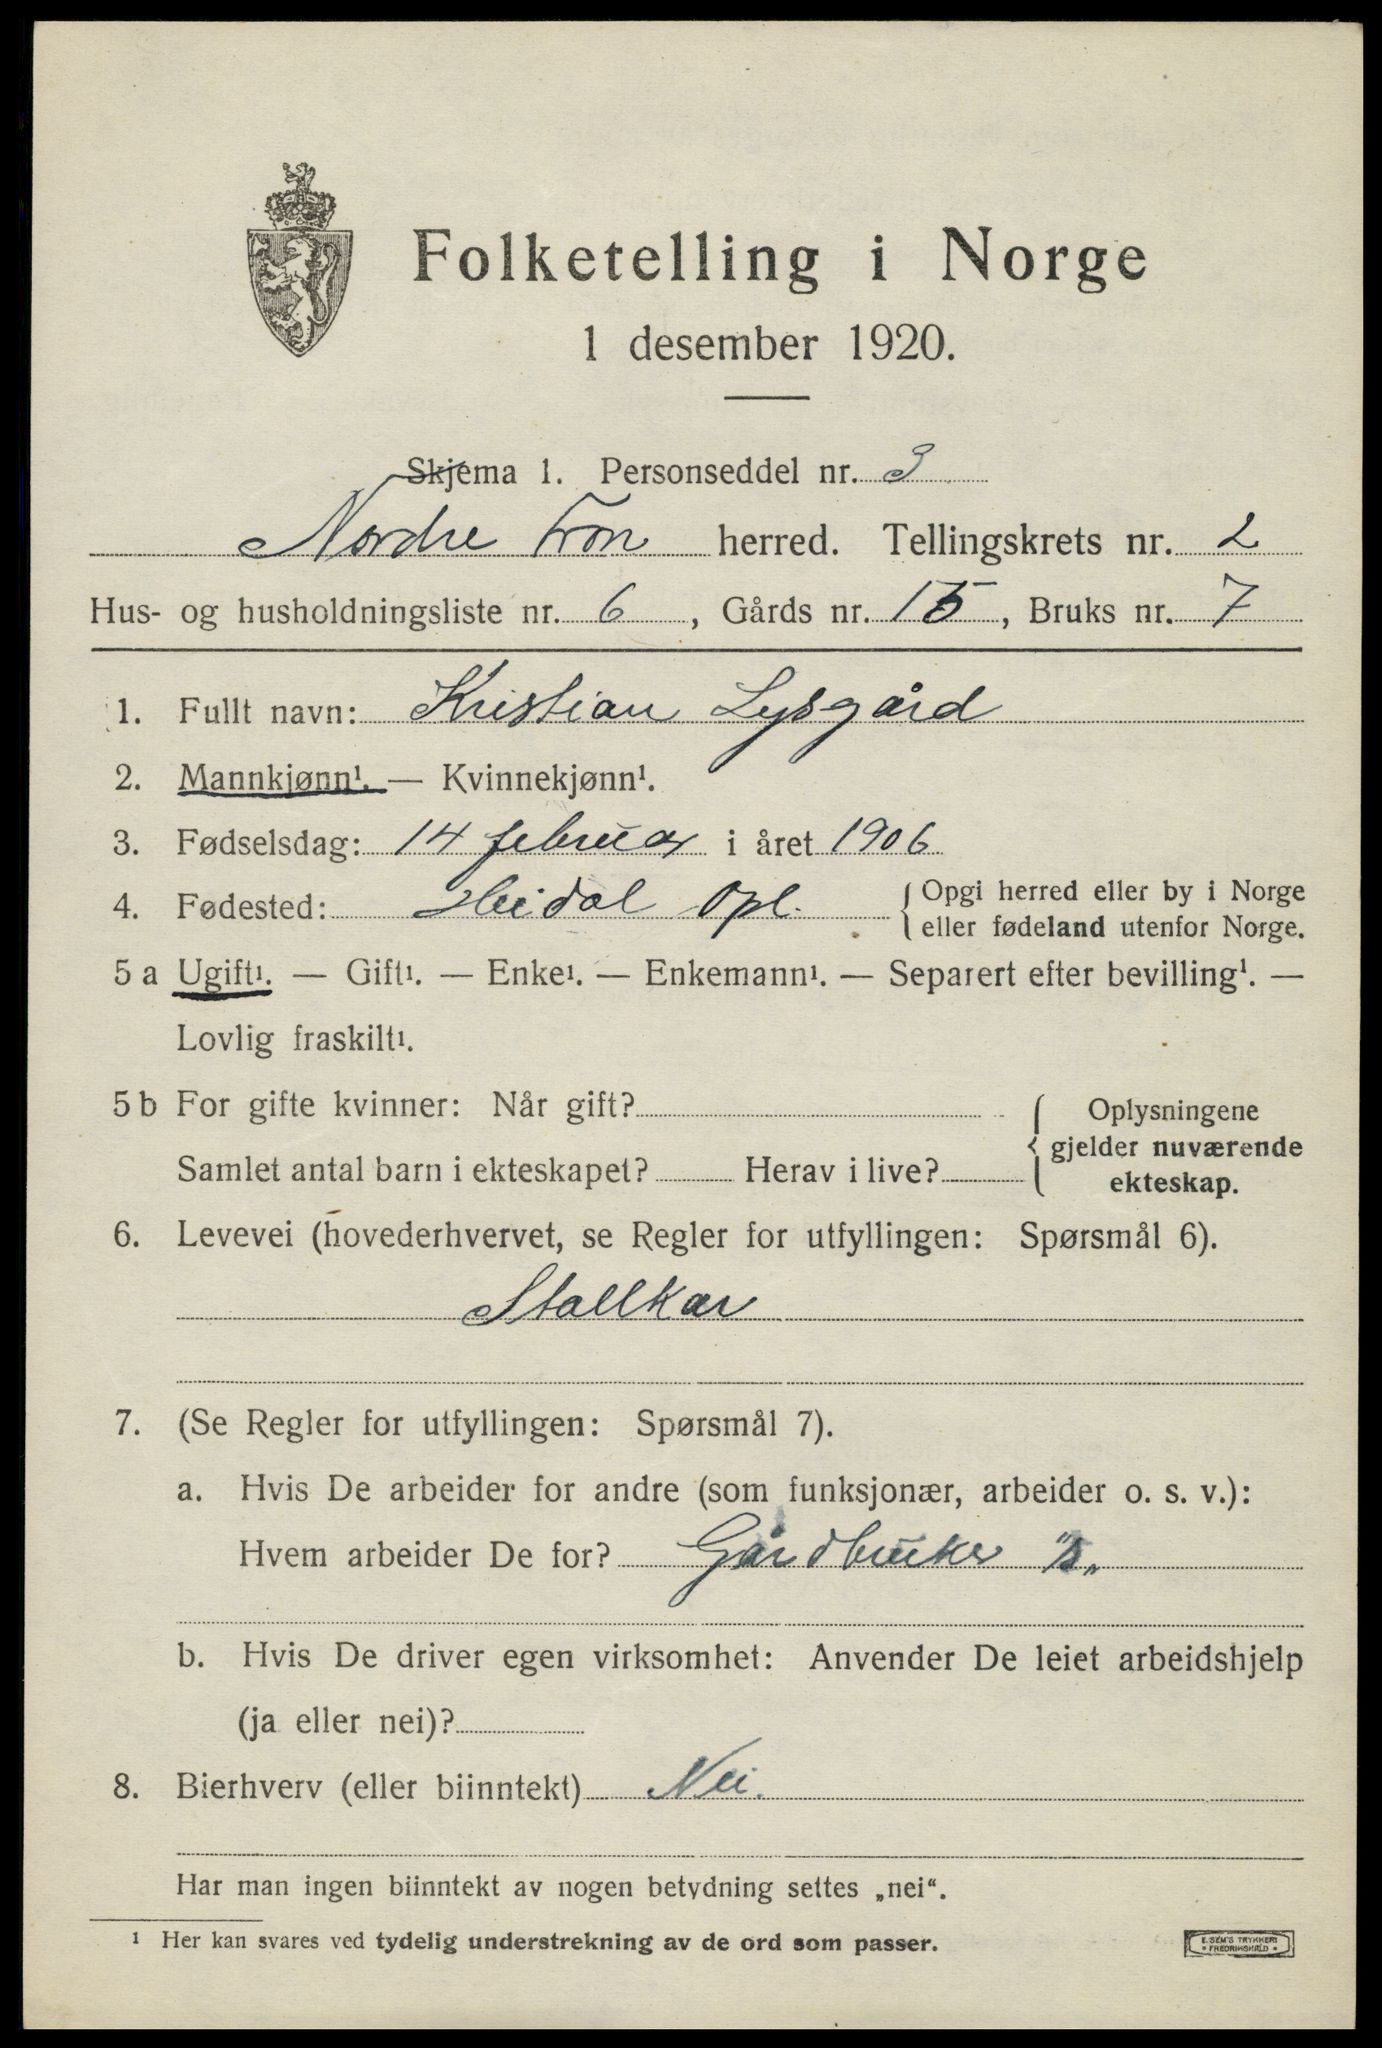 Folketelling i Norge
1 desember 1920.
Skjema 1. Personseddel nr. 3
Nordre Fron herred. Tellingskrets nr. 2
Hus- og husholdningsliste nr. 6, Gårds nr. 15, Bruks nr. 7
1. Fullt navn: Kristian Lysgård
2. Mannkjønn¹. — Kvinnekjønn¹.
3. Fødselsdag: 14 februar i året 1906
4. Fødested: Heidal Opl. { Opgi herred eller by i Norge
eller fødeland utenfor Norge.
5 a Ugift¹. — Gift¹. — Enke¹. — Enkemann¹. — Separert efter bevilling¹. —
Lovlig fraskilt¹.
5 b For gifte kvinner: Når gift?
Samlet antal barn i ekteskapet? Herav i live?
{ Oplysningene
gjelder nuværende
ekteskap.
6. Levevei (hovederhvervet, se Regler for utfyllingen: Spørsmål 6).
Stallkar
7. (Se Regler for utfyllingen: Spørsmål 7).
a. Hvis De arbeider for andre (som funksjonær, arbeider o. s. v.):
Hvem arbeider De for? Gårdbruker
b. Hvis De driver egen virksomhet: Anvender De leiet arbeidshjelp
(ja eller nei)?
8. Bierhverv (eller biinntekt) Nei.
Har man ingen biinntekt av nogen betydning settes „nei“.
¹ Her kan svares ved tydelig understrekning av de ord som passer.
E. SEM'S TRYKKERI
• FREDRIKSHALD •